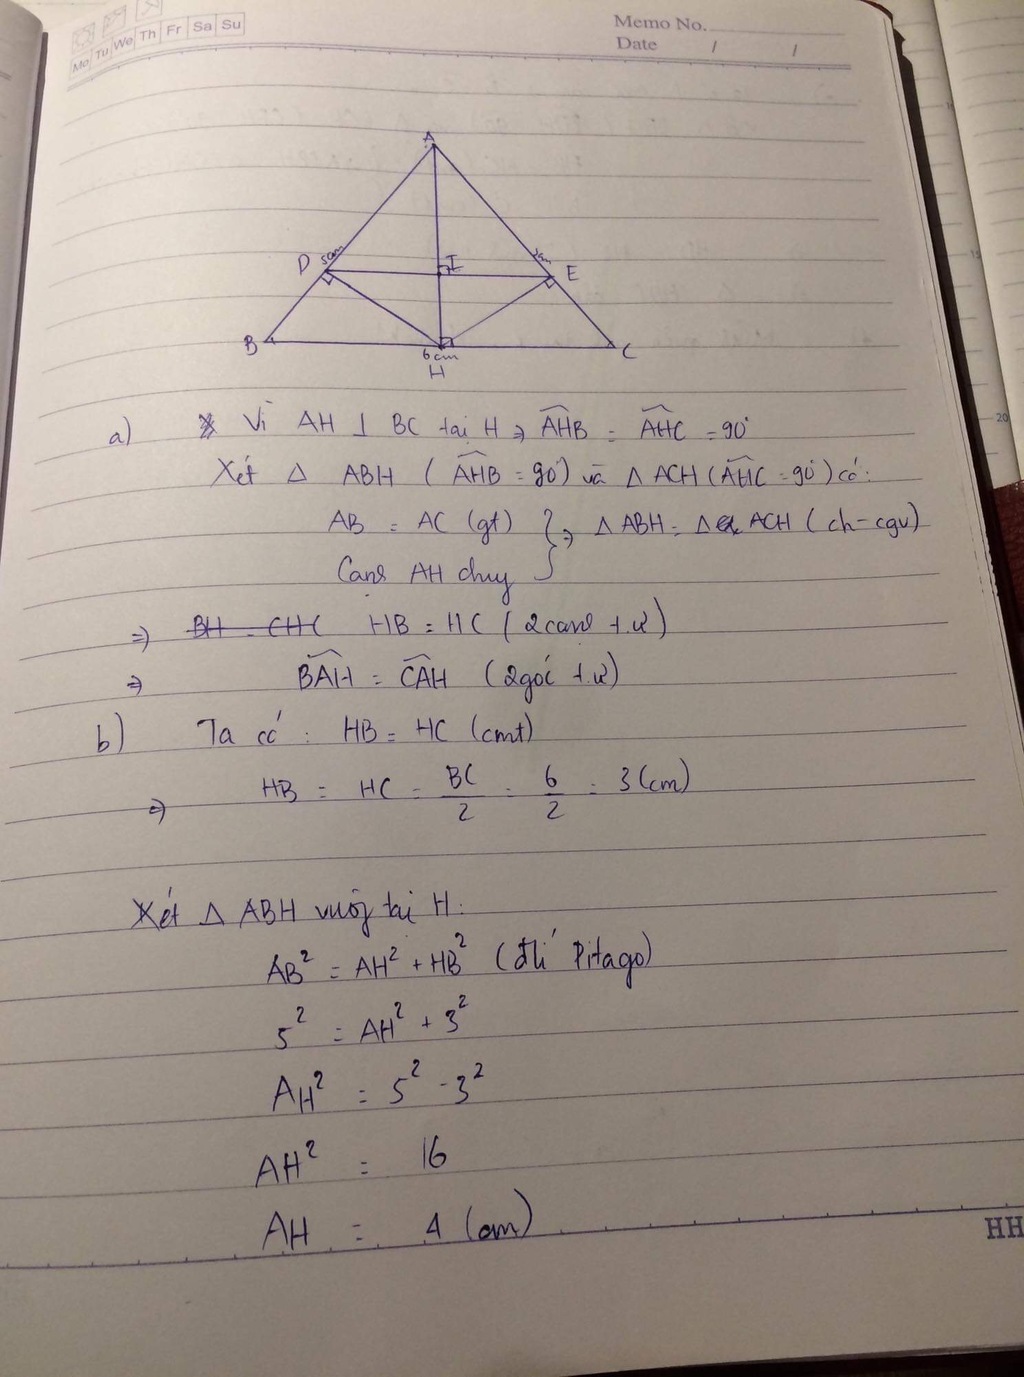 Memo No.
Mo Tu We Th Fr Sa Su
Date / /
A
D 5cm I 5cm E
B 6cm C
H
a) Vì AH ⊥ BC tại H ⇒ \widehat{AHB} = \widehat{AHC} = 90°
Xét Δ ABH ( \widehat{AHB} = 90°) và Δ ACH ( \widehat{AHC} = 90°) có:
AB = AC (gt) } ⇒ Δ ABH = Δ ACH ( ch - cgv)
Cạnh AH chug
⇒ HB = HC ( 2 cạnh t.ư)
⇒ \widehat{BAH} = \widehat{CAH} (2 góc t.ư)
b) Ta có : HB = HC (cmt)
⇒ HB = HC = \frac{BC}{2} = \frac{6}{2} = 3 (cm)
Xét Δ ABH vuôg tại H:
AB² = AH² + HB² (đlí Pitago)
5² = AH² + 3²
AH² = 5² - 3²
AH² = 16
AH = 4 (cm)
HH
15
20